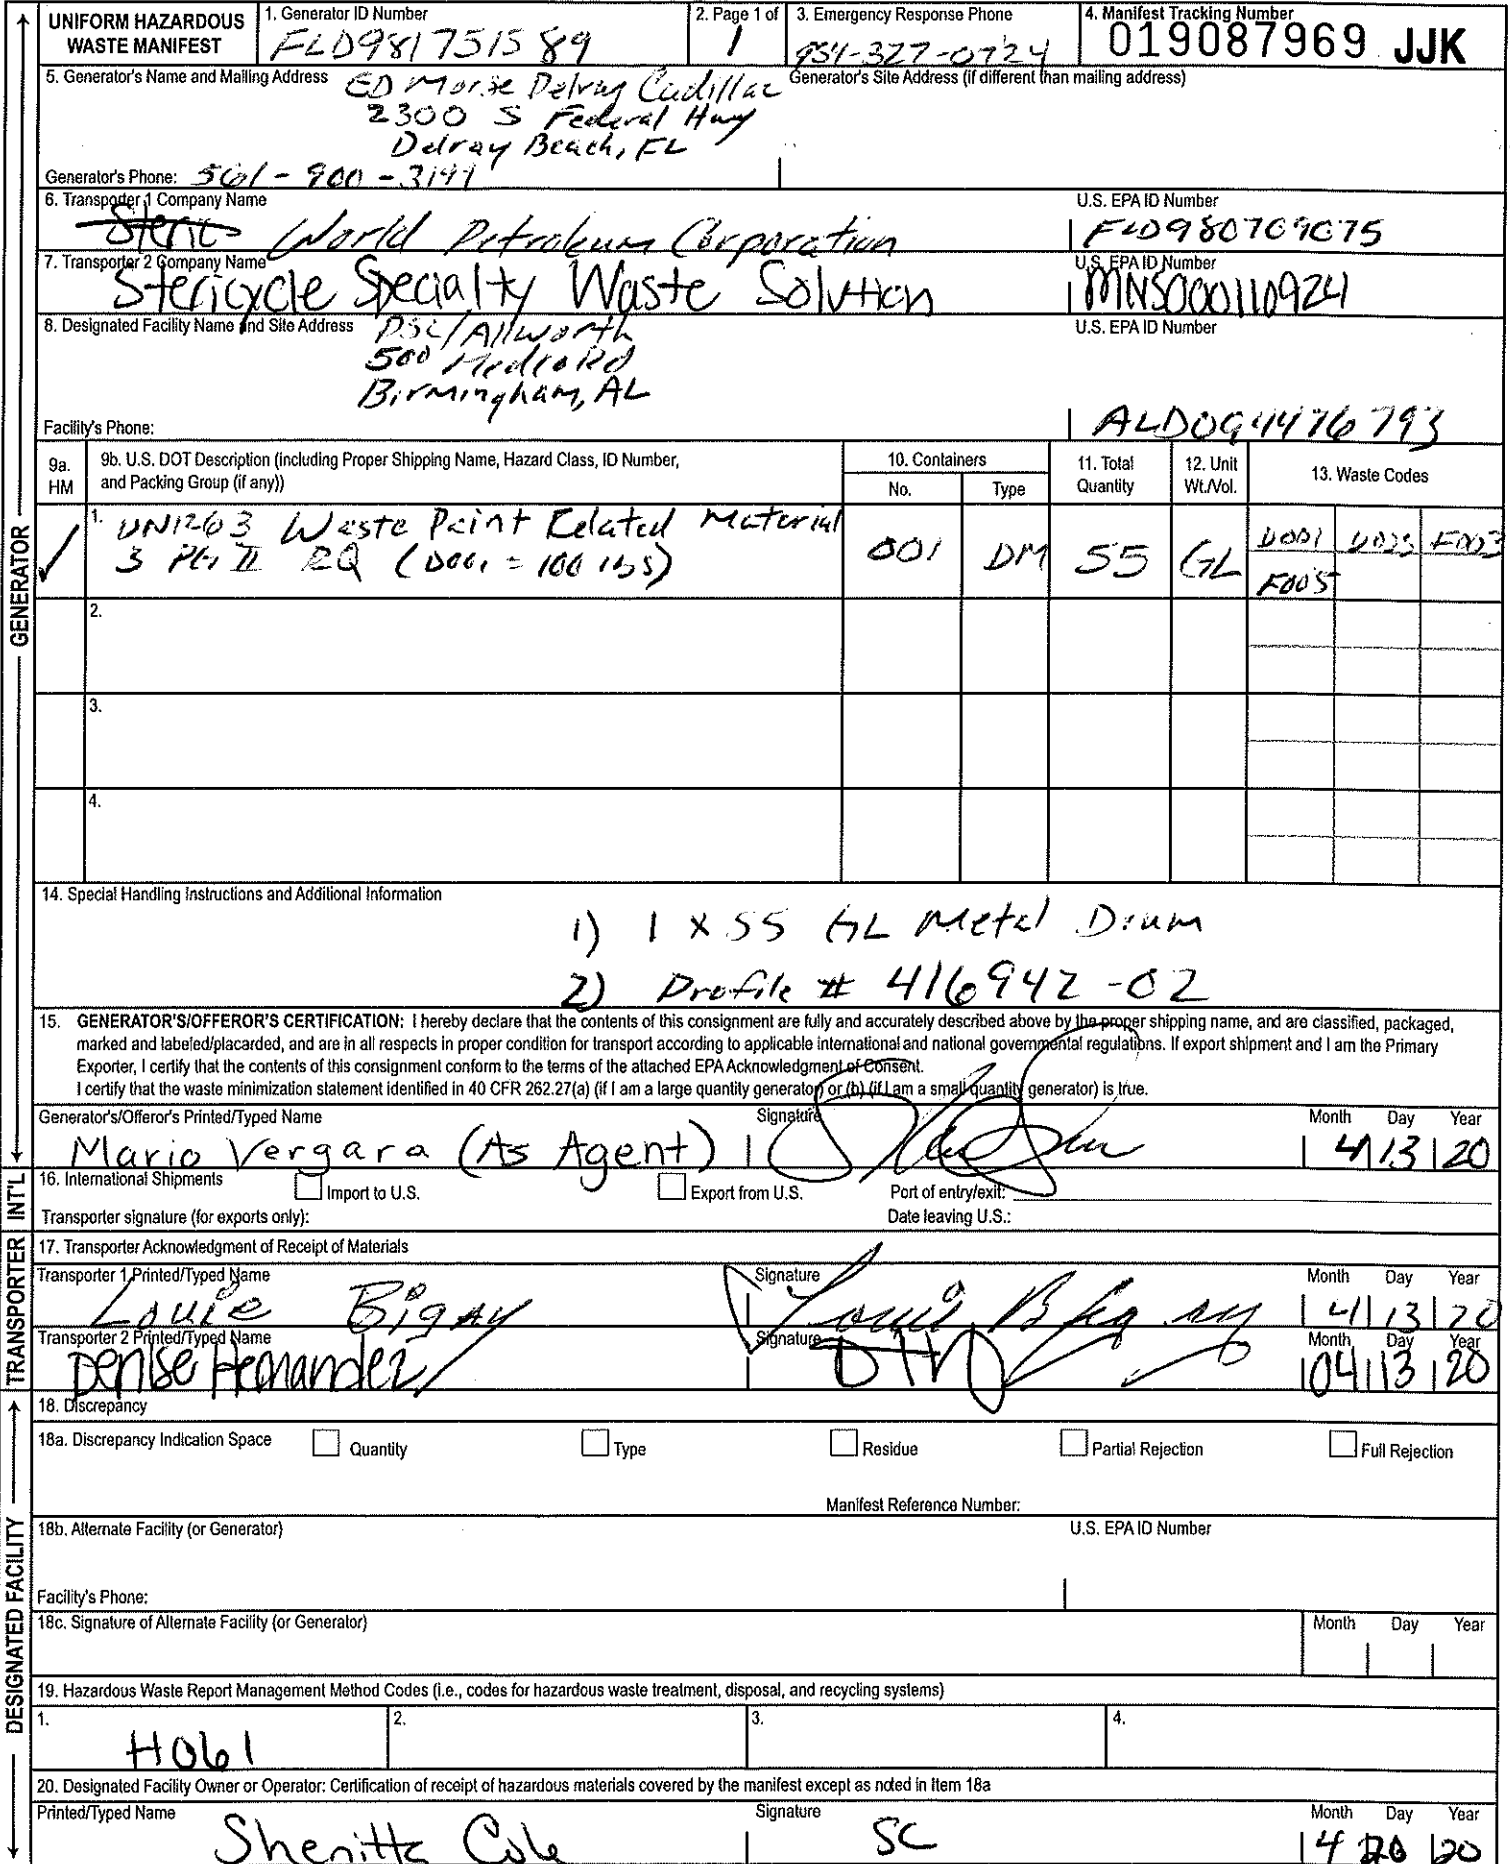 UNIFORM HAZARDOUS WASTE MANIFEST
1. Generator ID Number
FLD981751589
2. Page 1 of
1
3. Emergency Response Phone
954-327-0724
4. Manifest Tracking Number
019087969 JJK
5. Generator's Name and Mailing Address
ED Morse Delray Cadillac
2300 S Federal Hwy
Delray Beach, FL
Generator's Site Address (if different than mailing address)
Generator's Phone: 561-900-3141
6. Transporter 1 Company Name
World Petroleum Corporation
U.S. EPA ID Number
FLD980709075
7. Transporter 2 Company Name
Stericycle Specialty Waste Solution
U.S. EPA ID Number
MNS000110924
8. Designated Facility Name and Site Address
PSC/Allworth
500 Medco Rd
Birmingham, AL
U.S. EPA ID Number
Facility's Phone:
ALD094476793
9a. HM
9b. U.S. DOT Description (including Proper Shipping Name, Hazard Class, ID Number, and Packing Group (if any))
10. Containers
No.
Type
11. Total Quantity
12. Unit Wt./Vol.
13. Waste Codes
1. UN1263 Waste Paint Related Material
3 PG II RQ (D001 = 100 lbs)
001 DM 55 GL
D001 F003
F005
2.
3.
4.
14. Special Handling Instructions and Additional Information
1) 1 x 55 GL Metal Drum
2) Profile # 416942-02
15. GENERATOR'S/OFFEROR'S CERTIFICATION: I hereby declare that the contents of this consignment are fully and accurately described above by the proper shipping name, and are classified, packaged,
marked and labeled/placarded, and are in all respects in proper condition for transport according to applicable international and national governmental regulations. If export shipment and I am the Primary
Exporter, I certify that the contents of this consignment conform to the terms of the attached EPA Acknowledgment of Consent.
I certify that the waste minimization statement identified in 40 CFR 262.27(a) (if I am a large quantity generator) or (b) (if I am a small quantity generator) is true.
Generator's/Offeror's Printed/Typed Name
Signature
Month Day Year
Mario Vergara (As Agent)
4 13 20
16. International Shipments
Import to U.S.
Export from U.S.
Port of entry/exit:
Transporter signature (for exports only):
Date leaving U.S.:
17. Transporter Acknowledgment of Receipt of Materials
Transporter 1 Printed/Typed Name
Signature
Month Day Year
Louie Bigay
4 13 20
Transporter 2 Printed/Typed Name
Signature
Month Day Year
Denise Hernandez
04 13 20
18. Discrepancy
18a. Discrepancy Indication Space
Quantity
Type
Residue
Partial Rejection
Full Rejection
Manifest Reference Number:
18b. Alternate Facility (or Generator)
U.S. EPA ID Number
Facility's Phone:
18c. Signature of Alternate Facility (or Generator)
Month Day Year
19. Hazardous Waste Report Management Method Codes (i.e., codes for hazardous waste treatment, disposal, and recycling systems)
1. H061
2.
3.
4.
20. Designated Facility Owner or Operator: Certification of receipt of hazardous materials covered by the manifest except as noted in Item 18a
Printed/Typed Name
Signature
Month Day Year
Shenitta Cole
SC
4 20 20
GENERATOR
INT'L
TRANSPORTER
DESIGNATED FACILITY